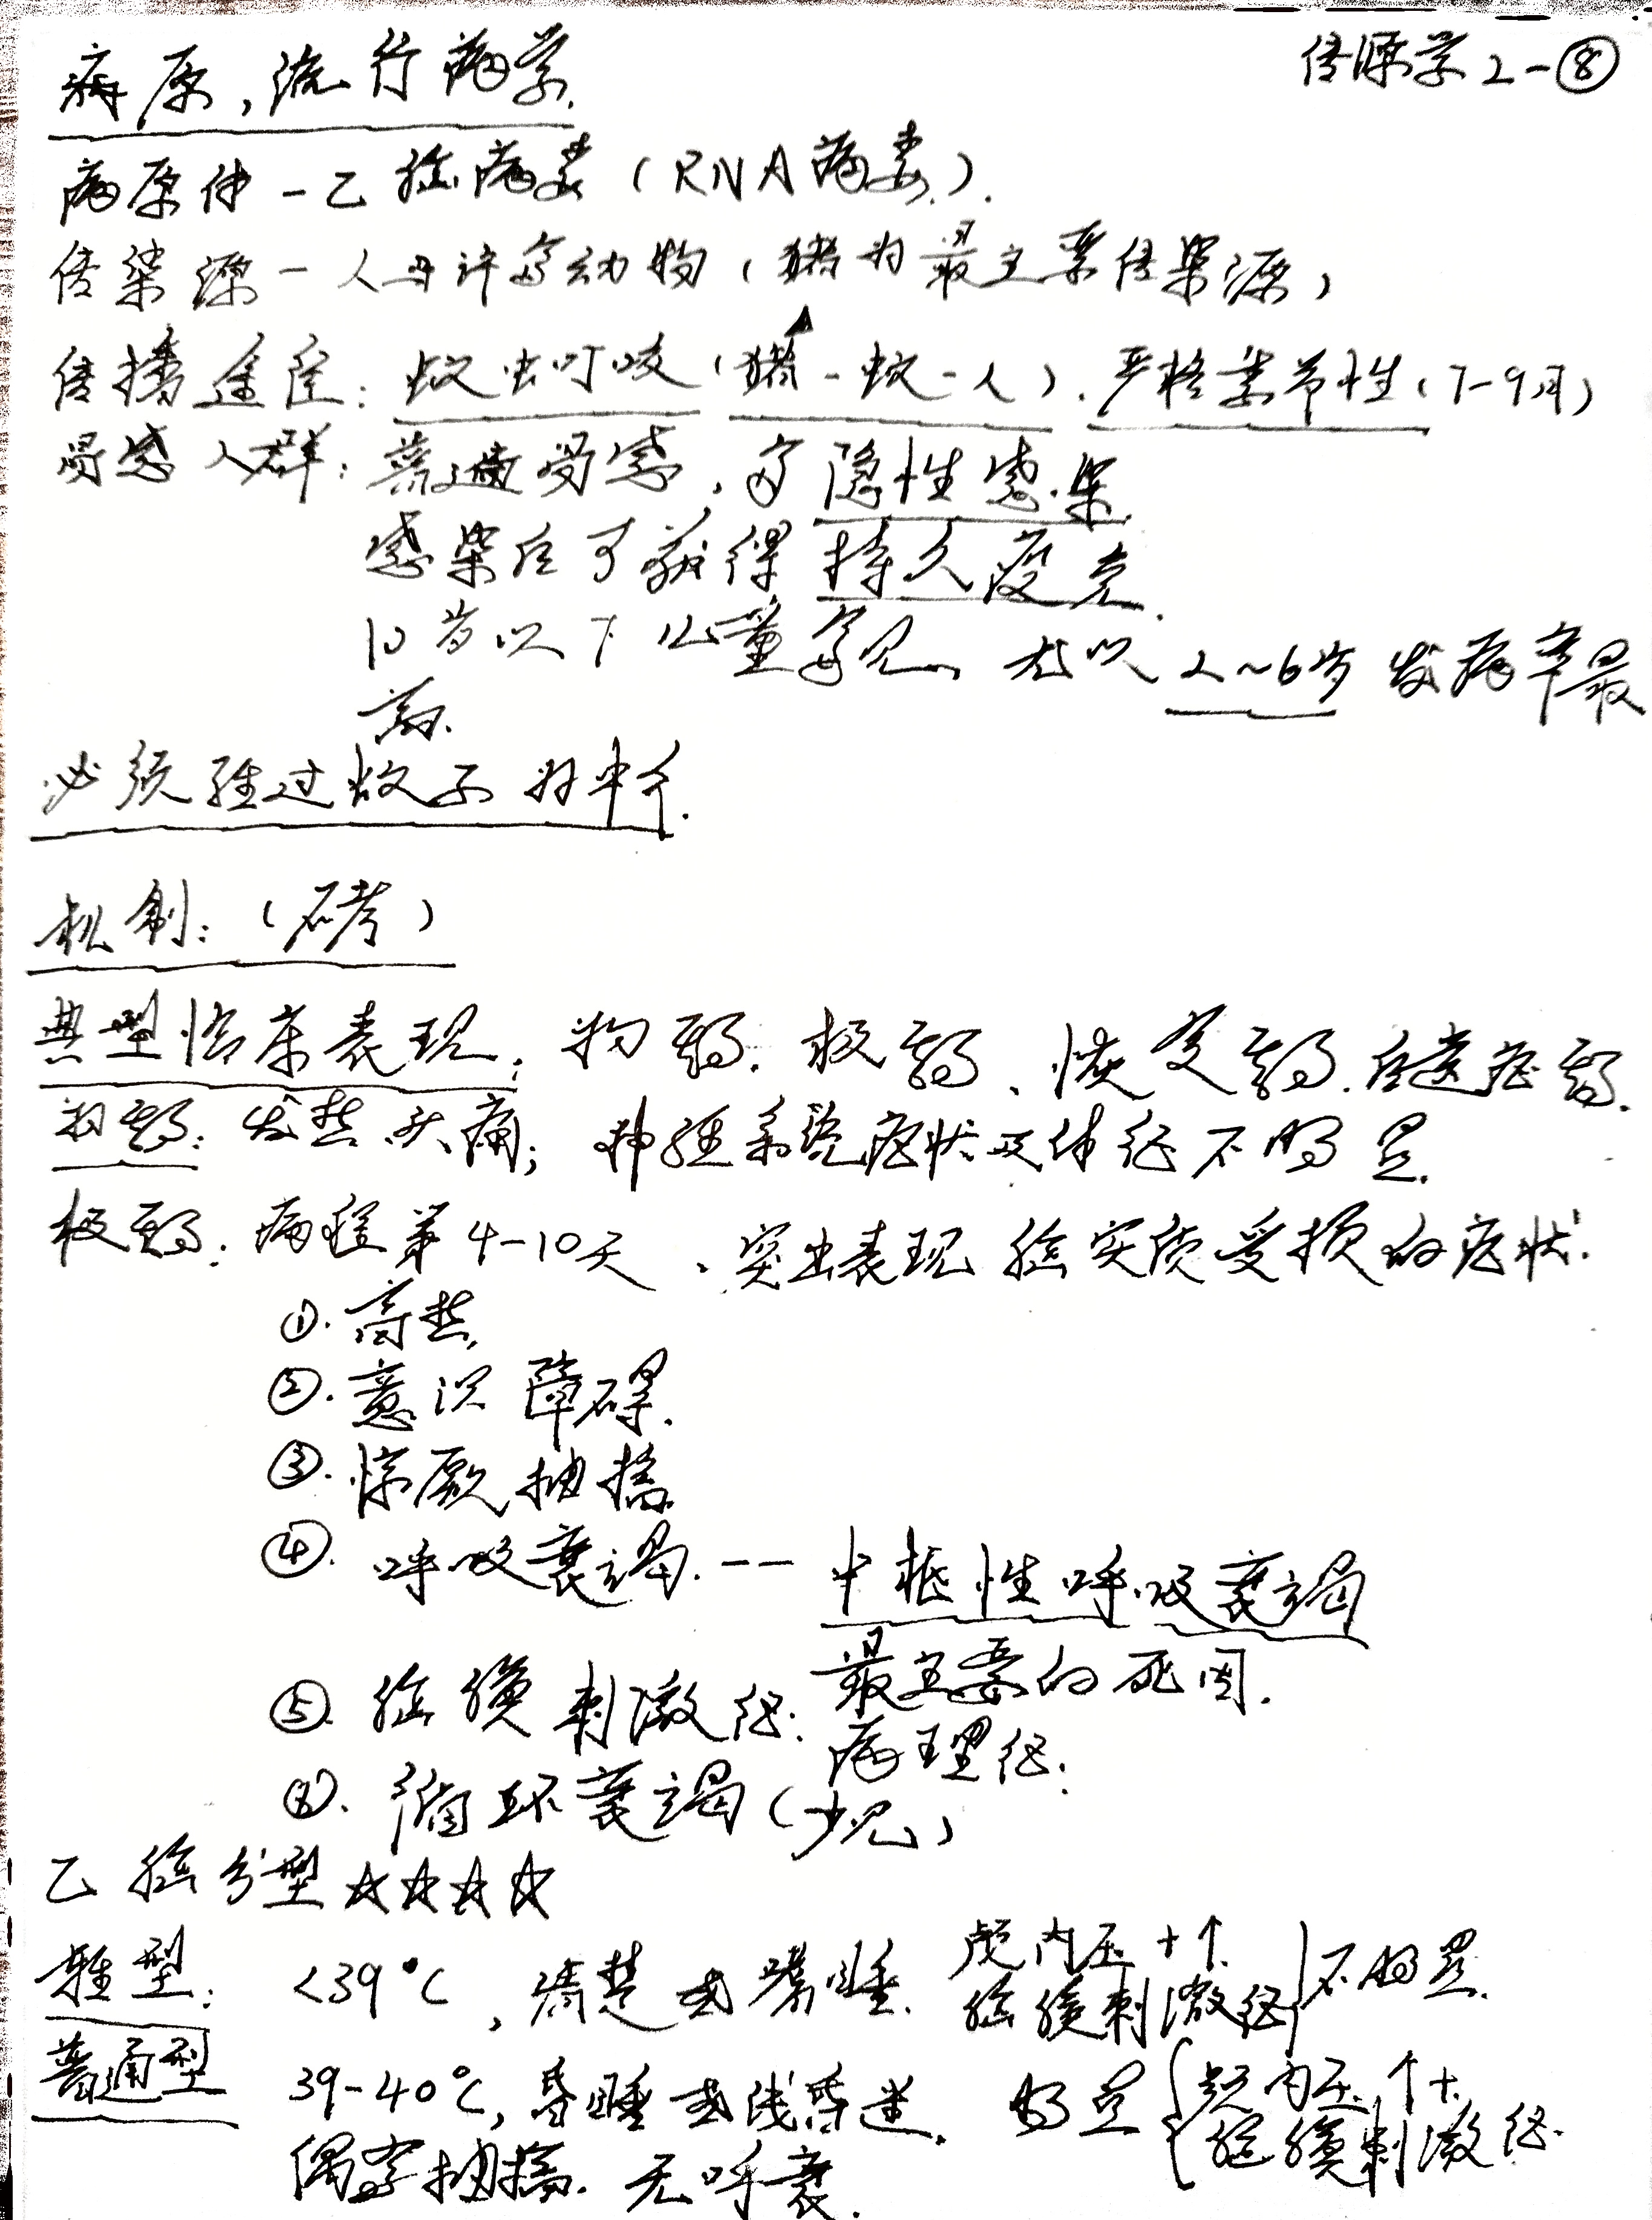 传染病学2-⑧
病原,流行病学.
病原体-乙脑病毒(RNA病毒).
传染源-人与许多动物(猪为最主要传染源)
传播途径:蚊虫叮咬(猪-蚊-人).严格季节性(7-9月)
易感人群:普遍易感,多隐性感染
感染后可获得持久免疫.
10岁以下儿童多见、尤以2~6岁发病率最
高.
必须经过蚊子为中介.
机制:(研考)
典型临床表现:初期.极期、恢复期.后遗症期.
初期:发热头痛;神经系统症状及体征不明显.
极期:病程第4-10天、突出表现脑实质受损的症状.
①.高热.
②.意识障碍.
③.惊厥抽搐
④.呼吸衰竭.--中枢性呼吸衰竭
最主要的死因.
⑤.脑膜刺激征:病理征.
⑥.循环衰竭(少见)
乙脑分型☆☆☆☆
轻型: <39℃,清楚或嗜睡.颅内压+↑ 脑膜刺激征}不明显.
普通型 39-40℃,昏睡或浅昏迷.明显{颅内压↑+. 脑膜刺激征.
偶有抽搐.无呼衰.